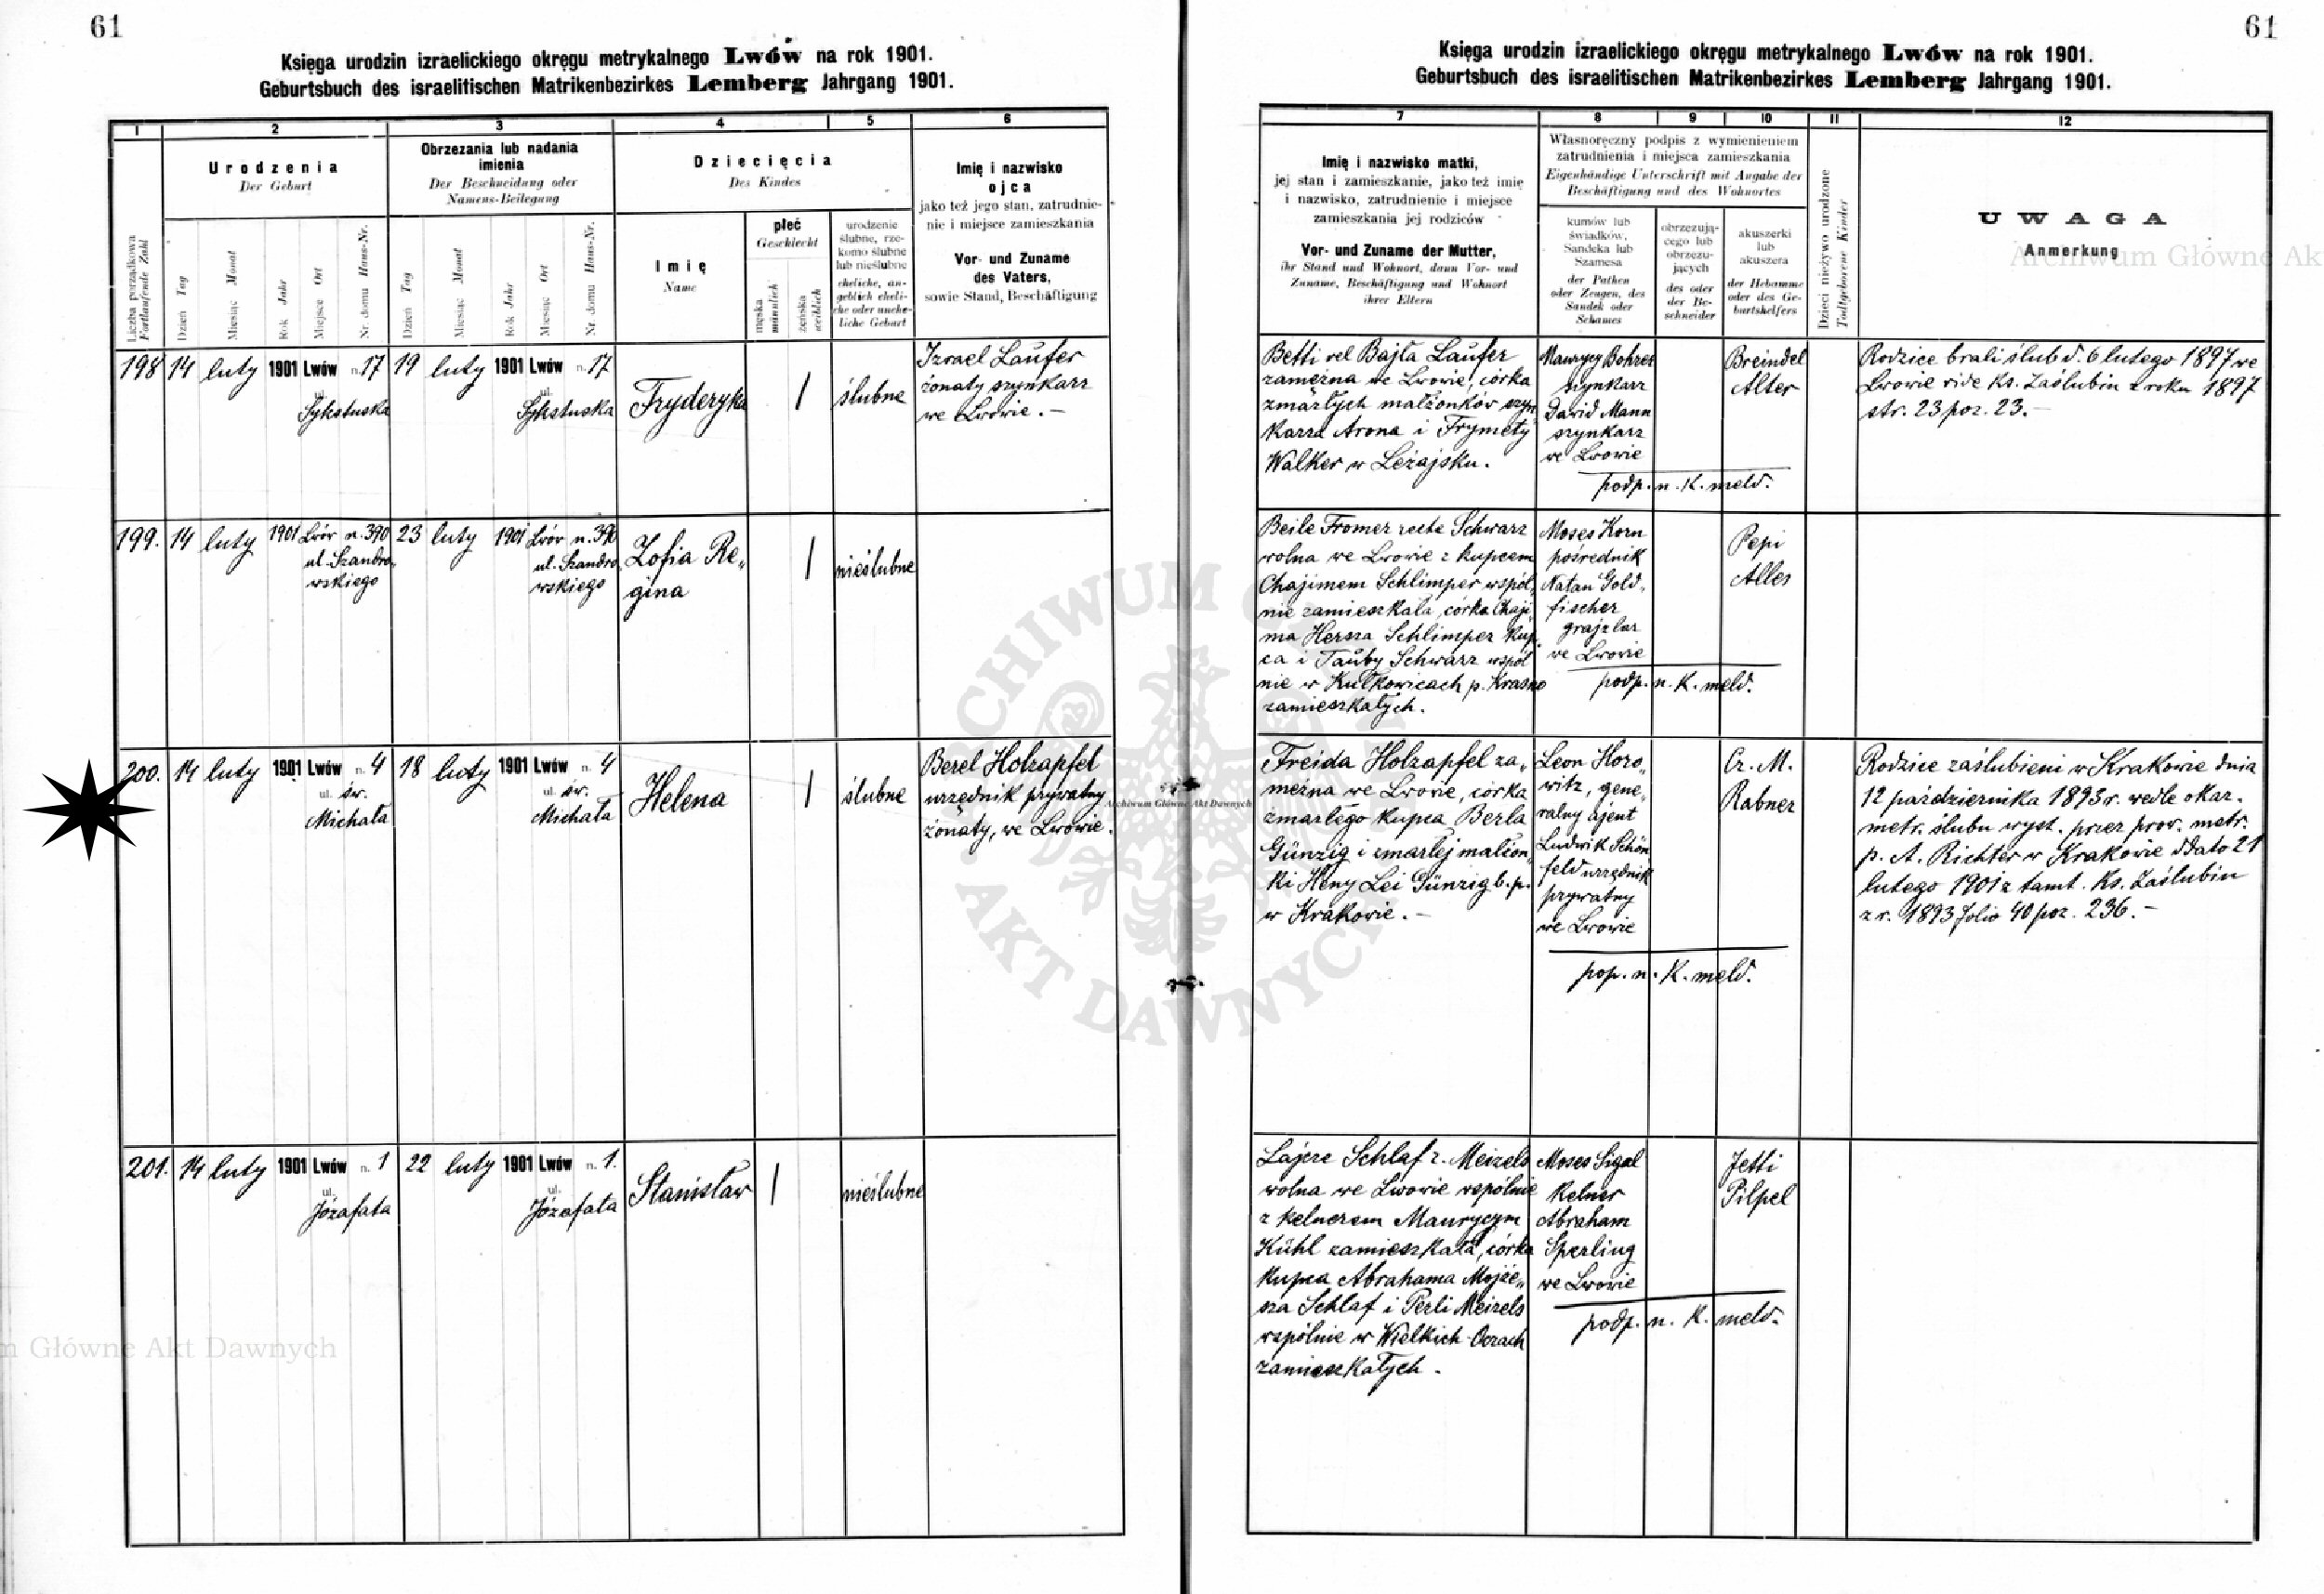 61
Księga urodzin izraelickiego okręgu metrykalnego Lwów na rok 1901.
Geburtsbuch des israelitischen Matrikenbezirkes Lemberg Jahrgang 1901.
1
2
3
4
5
6
Liczba porządkowa
Fortlaufende Zahl
Urodzenia
Der Geburt
Dzień Tag
Miesiąc Monat
Rok Jahr
Miejsce Ort
Nr. domu Haus-Nr.
Obrzezania lub nadania
imienia
Der Beschneidung oder
Namens-Beilegung
Dzień Tag
Miesiąc Monat
Rok Jahr
Miejsce Ort
Nr. domu Haus-Nr.
Dziecięcia
Des Kindes
Imię
Name
płeć
Geschlecht
męska
männlich
żeńska
weiblich
urodzenie
ślubne, rze-
komo ślubne
lub nieślubne
eheliche, an-
geblich eheli-
che oder unehe-
liche Geburt
Imię i nazwisko
ojca
jako też jego stan, zatrudnie-
nie i miejsce zamieszkania
Vor- und Zuname
des Vaters,
sowie Stand, Beschäftigung
198 14 luty 1901 Lwów n. 17 19 luty 1901 Lwów n. 17
ul.
Sykstuska
Sykstuska
Fryderyka
/
ślubne
Izrael Laufer
żonaty szynkarz
we Lwowie. –
199. 14 luty 1901 Lwów n. 390 23 luty 1901 Lwów n. 390
ul. Szandro„
wskiego
ul. Szandro
wskiego
Zofia Re„
gina
/
nieślubne
200. 14 luty 1901 Lwów n. 4 18 luty 1901 Lwów n. 4
ul. św.
Michała
ul. św.
Michała
Helena
/
ślubne
Berel Holzapfel
urzędnik prywatny
żonaty, we Lwowie.
201. 14 luty 1901 Lwów n. 1 22 luty 1901 Lwów n. 1.
ul.
Józafata
ul.
Józafata
Stanisław
/
nieślubne
61
Księga urodzin izraelickiego okręgu metrykalnego Lwów na rok 1901.
Geburtsbuch des israelitischen Matrikenbezirkes Lemberg Jahrgang 1901.
7
8
9
10
11
12
Imię i nazwisko matki,
jej stan i zamieszkanie, jako też imię
i nazwisko, zatrudnienie i miejsce
zamieszkania jej rodziców
Vor- und Zuname der Mutter,
ihr Stand und Wohnort, dann Vor- und
Zuname, Beschäftigung und Wohnort
ihrer Eltern
Własnoręczny podpis z wymienieniem
zatrudnienia i miejsca zamieszkania
Eigenhändige Unterschrift mit Angabe der
Beschäftigung und des Wohnortes
kumów lub
świadków,
Sandeka lub
Szamesa
der Pathen
oder Zeugen, des
Sandek oder
Schames
obrzezują-
cego lub
obrzezu-
jących
des oder
der Be-
schneider
akuszerki
lub
akuszera
der Hebamme
oder des Ge-
burtshelfers
Dzieci nieżywo urodzone
Todtgeborene Kinder
UWAGA
Anmerkung
Betti vel Bajla Laufer
zamężna we Lwowie, córka
zmarłych małżonków szyn
karza Arona i Frymety
Walker w Leżajsku.
Maurycy Bohrer
szynkarz
Dawid Mann
szynkarz
we Lwowie
podp. n. K. meld.
Breindel
Alter
Rodzice brali ślub d. 6 lutego 1897 we
Lwowie vide Ks. Zaślubin z roku 1897
str. 23 poz. 23. –
Beile Fromer recte Schwarz
wolna we Lwowie z kupcem
Chajimem Schlimper wspól„
nie zamieszkała, córka Chaji
ma Hersza Schlimper kup„
ca i Tauby Schwarz wspól
nie w Kutkowicach p. Krasno
zamieszkałych.
Moses Korn
pośrednik
Natan Gold„
fischer
grajzlar
we Lwowie
podp. n. K. meld.
Pepi
Alles
Freida Holzapfel za„
mężna we Lwowie, córka
zmarłego kupca Berla
Günzig i zmarłej małżon„
ki Heny Lei Günzig b. p.
w Krakowie. –
Leon Horo„
witz, gene„
ralny ajent
Ludwik Schön
feld urzędnik
prywatny
we Lwowie
pop. n. K. meld.
Cz. M.
Rabner
Rodzice zaślubieni w Krakowie dnia
12 października 1893 r. wedle okaz.
metr. ślubu wyst. przez prow. metr.
p. A. Richter w Krakowie ddato 21
lutego 1901 z tamt. Ks. Zaślubin
z r. 1893 folio 40 poz. 236. –
Lajze Schlaf r. Meizels
wolna we Lwowie wspólnie
z kelnerem Maurycym
Kühl zamieszkała, córka
kupca Abrahama Mojże„
sza Schlaf i Perli Meizels
wspólnie w Wielkich Oczach
zamieszkałych.
Moses Sigal
kelner
Abraham
Sperling
we Lwowie
podp. n. K. meld.
Jetti
Pilpel
Archiwum Główne Ak
Archiwum Główne Akt Dawnych
m Główne Akt Dawnych
ARCHIWUM
AKT DAWNYCH